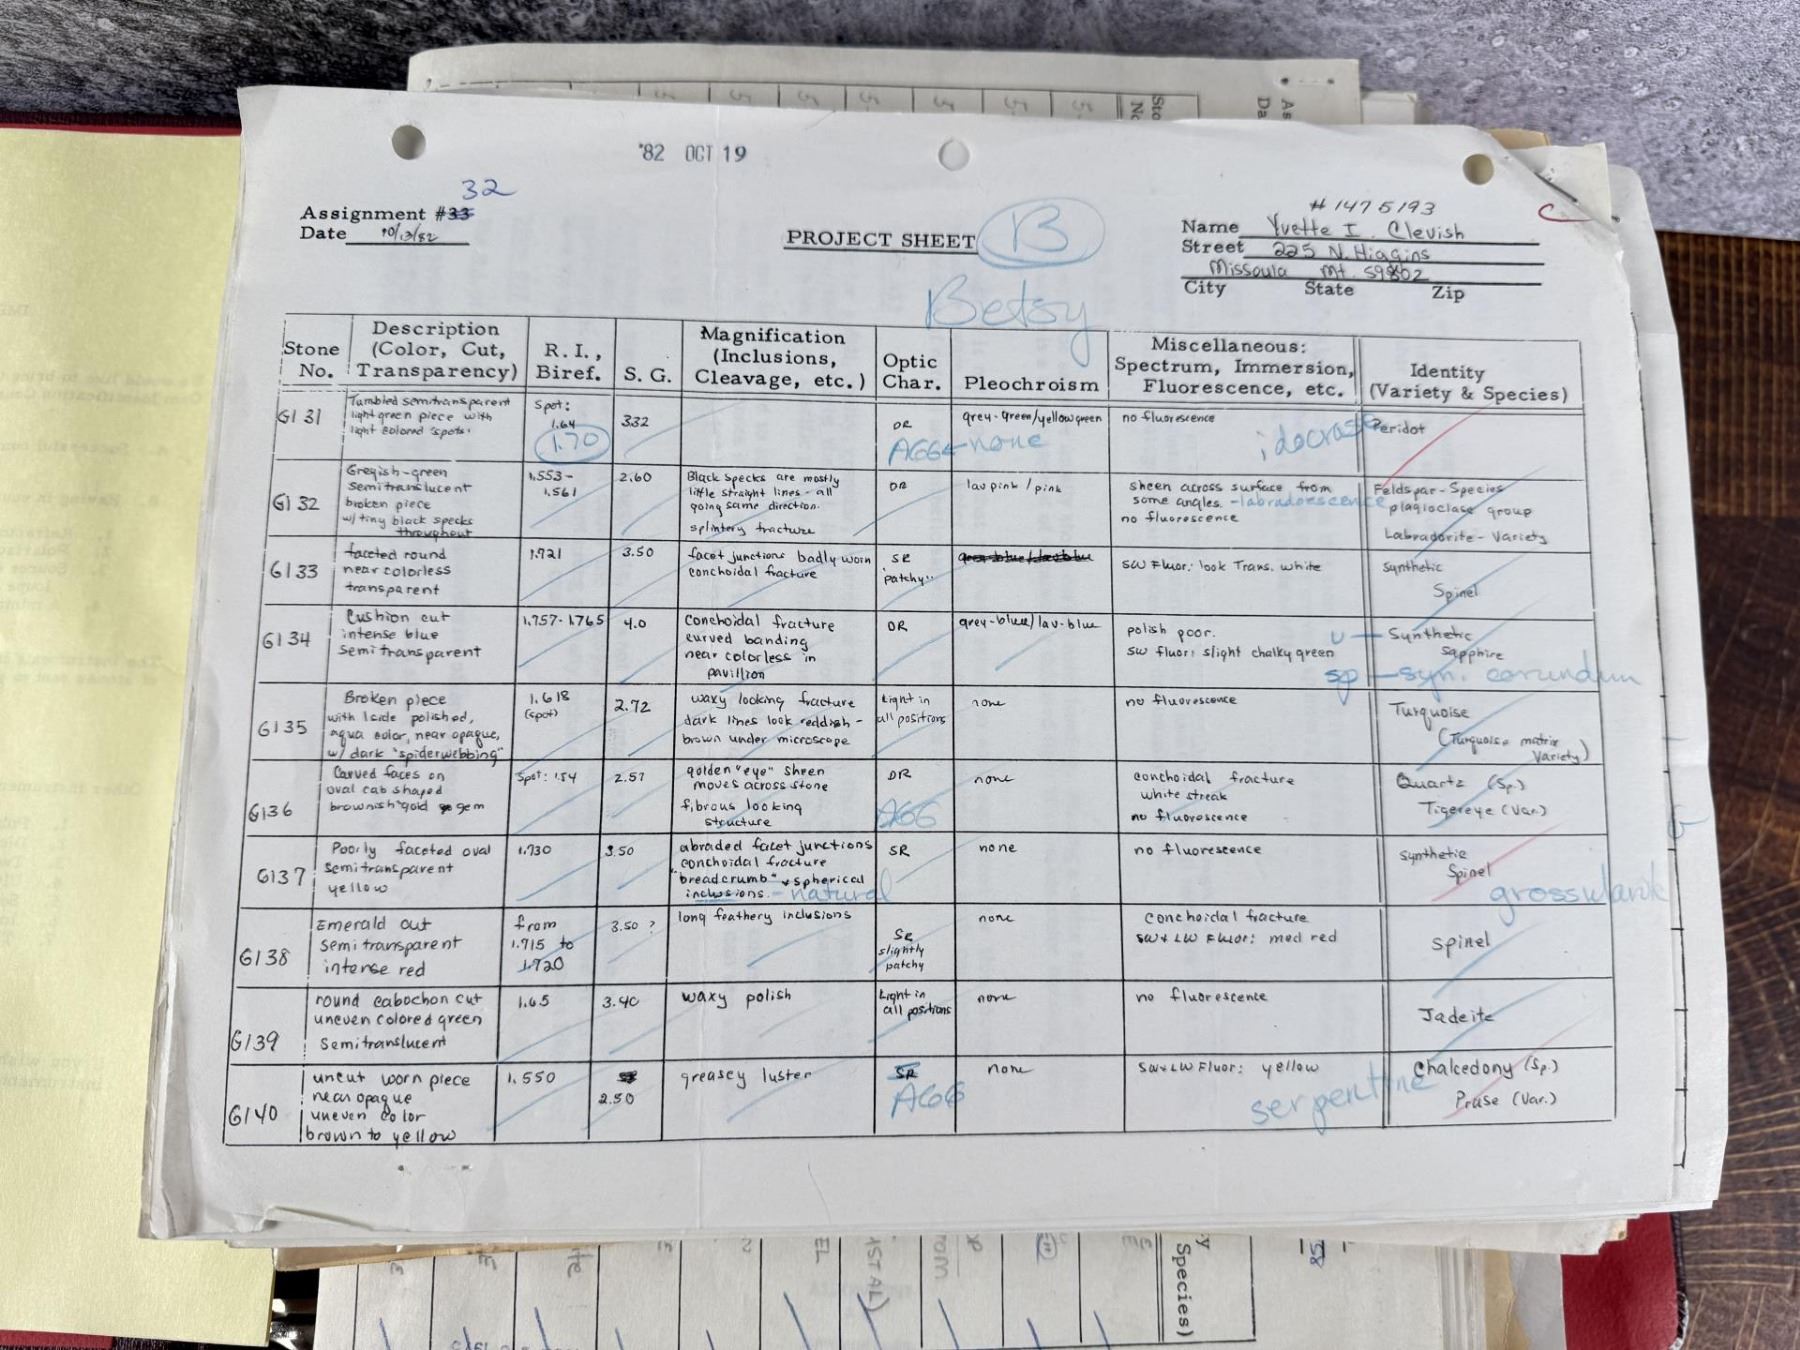 '82 OCT 19
32
Assignment #33
Date 10/13/82
PROJECT SHEET
B
Betsy
#1475193
Name Yvette I. Clevish
Street 225 N. Higgins
Missoula Mt. 59802
City State Zip
Stone No.
Description (Color, Cut, Transparency)
R. I., Biref.
S. G.
Magnification (Inclusions, Cleavage, etc.)
Optic Char.
Pleochroism
Miscellaneous: Spectrum, Immersion, Fluorescence, etc.
Identity (Variety & Species)
G131
Tumbled semitransparent
light green piece with
light colored spots.
Spot:
1.64
1.70
3.32
DR
AGG
grey-green/yellow green
none
no fluorescence
idocrase
Peridot
G132
Greyish-green
semitranslucent
broken piece
w/tiny black specks
throughout
1.553-
1.561
2.60
Black specks are mostly
little straight lines - all
going same direction.
splintery fracture
DR
lav pink / pink
sheen across surface from
some angles. -labradorescence
no fluorescence
Feldspar-Species
plagioclase group
Labradorite-Variety
G133
faceted round
near colorless
transparent
1.721
3.50
facet junctions badly worn
conchoidal fracture
SR
"patchy"
SW Fluor: look Trans. white
Synthetic
Spinel
G134
Cushion cut
intense blue
semitransparent
1.757-1.765
4.0
Conchoidal fracture
curved banding
near colorless in
pavillion
DR
grey-blue/lav-blue
polish poor.
SW fluor: slight chalky green
U — Synthetic
sapphire
sp — syn. corundum
G135
Broken piece
with 1 side polished,
aqua color, near opaque,
w/ dark "spiderwebbing"
1.618
(spot)
2.72
waxy looking fracture
dark lines look reddish-
brown under microscope
Light in
all positions
none
no fluorescence
Turquoise
(Turquoise matrix
Variety)
G136
Carved faces on
oval cab shaped
brownish-gold gem
Spot: 1.54
2.57
golden "eye" sheen
moves across stone
fibrous looking
structure
DR
AGG
none
conchoidal fracture
white streak
no fluorescence
Quartz (Sp.)
Tigereye (Var.)
G137
Poorly faceted oval
semitransparent
yellow
1.730
3.50
abraded facet junctions
conchoidal fracture
"breadcrumb" & spherical
inclusions. - natural
SR
none
no fluorescence
Synthetic
Spinel
grossularite
G138
Emerald cut
semitransparent
intense red
from
1.715 to
1.720
3.50 ?
long feathery inclusions
SR
slightly
patchy
none
conchoidal fracture
SW & LW Fluor: med red
Spinel
G139
round cabochon cut
uneven colored green
semitranslucent
1.65
3.40
waxy polish
Light in
all positions
none
no fluorescence
Jadeite
G140
uncut worn piece
near opaque
uneven color
brown to yellow
1.550
2.50
greasey luster
SR
AGG
none
SW & LW Fluor: yellow
serpentine
Chalcedony (Sp.)
Prase (Var.)
Species)